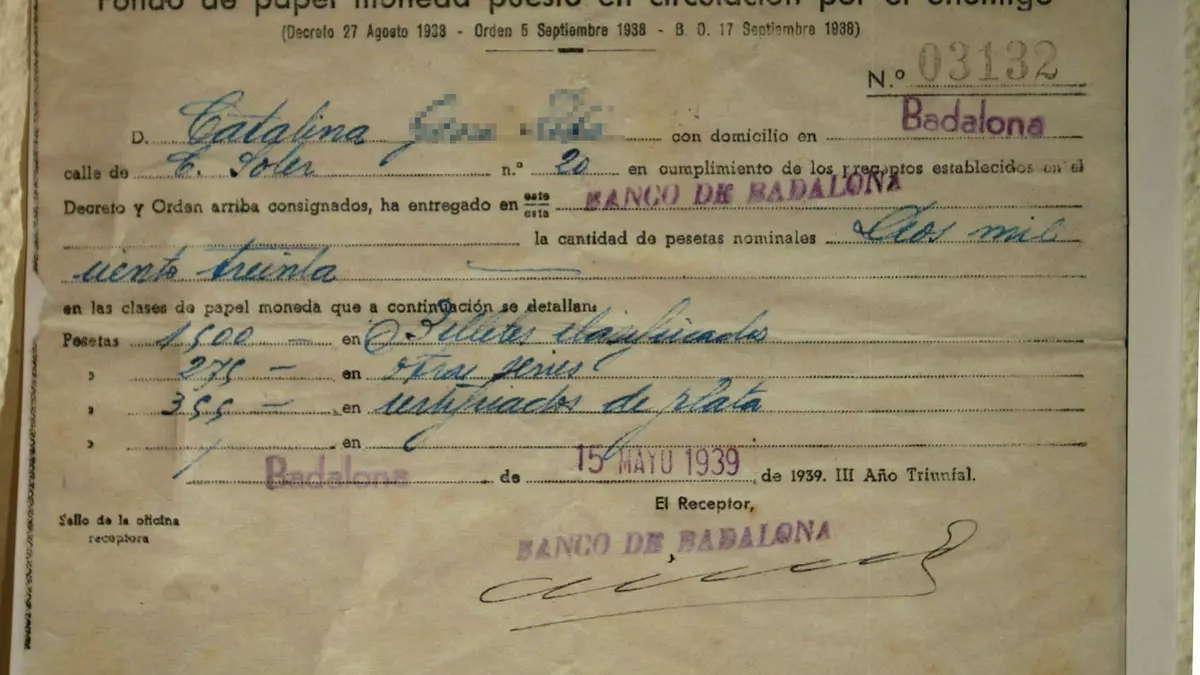 Fondo de papel moneda puesto en circulación por el enemigo
(Decreto 27 Agosto 1938 - Orden 5 Septiembre 1938 - B. O. 17 Septiembre 1938)
N.º 03132
D. Catalina con domicilio en Badalona
calle de C. Soler n.º 20 en cumplimiento de los preceptos establecidos en el
Decreto y Orden arriba consignados, ha entregado en este/esta BANCO DE BADALONA
la cantidad de pesetas nominales Dos mil
ciento treinta
en las clases de papel moneda que a continuación se detallan:
Pesetas 1500 — en Billetes clasificados
» 275 — en otras series
» 355 — en certificados de plata
» en
Badalona de 15 MAYO 1939 de 1939. III Año Triunfal.
El Receptor,
Sello de la oficina
receptora
BANCO DE BADALONA